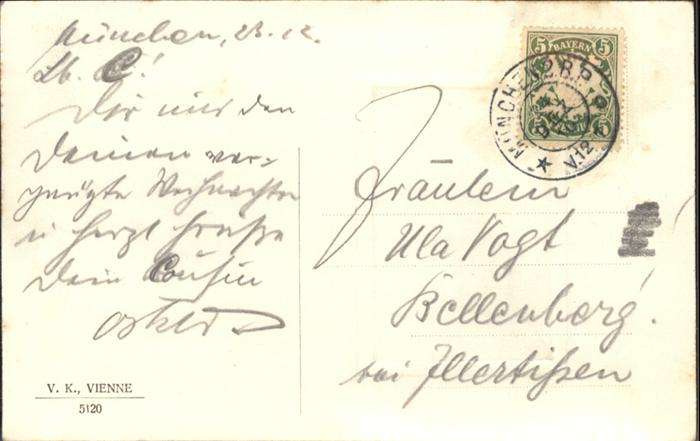 München, 23.12.
Lb. C!
Dir und den
Deinen ver-
gnügte Weihnachten
u herzl Grüße
Dein Cousin
Oskar
Fräulein
Ula Vogt
Bellenberg.
bei Illertissen
5 BAYERN 5
5 5
MÜNCHEN
V.12
V. K., VIENNE
5120